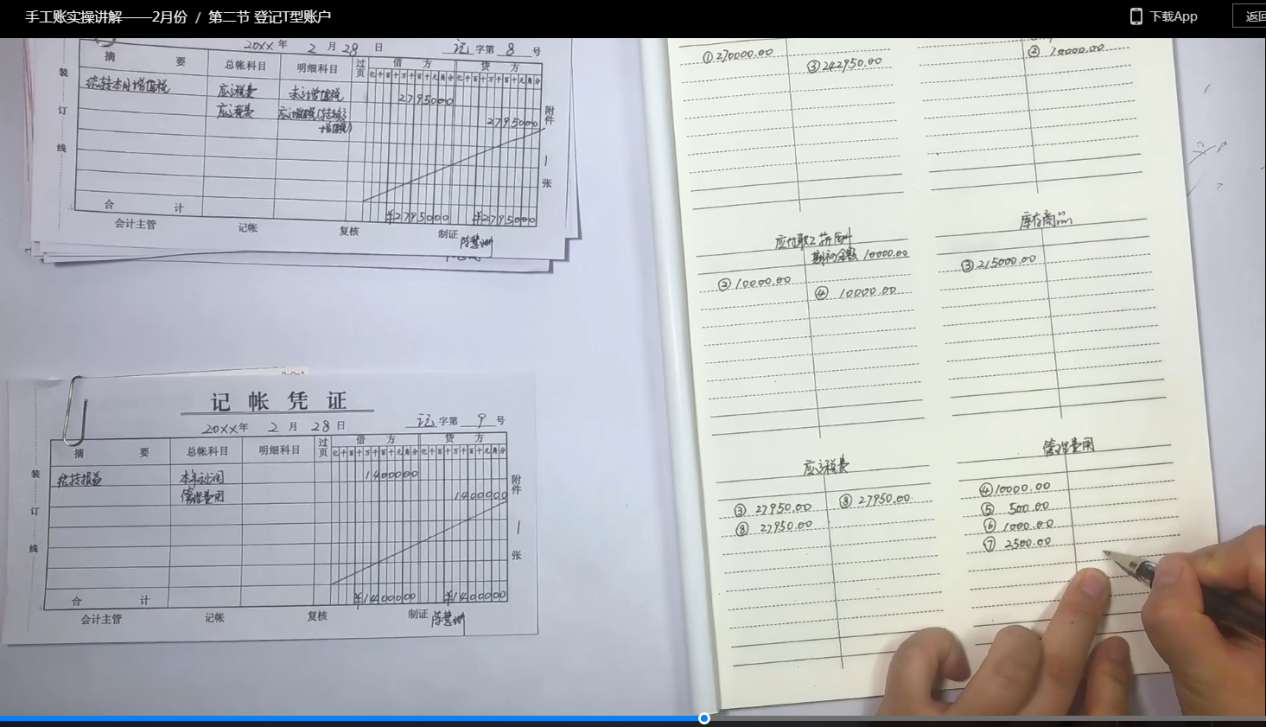 手工账实操讲解——2月份 / 第二节 登记T型账户
下载App
返回
20XX 年 2 月 28 日
记 字第 8 号
摘 要
总帐科目
明细科目
过页
借 方
贷 方
亿千百十万千百十元角分
亿千百十万千百十元角分
结转本月增值税
应交税费
未交增值税
2795000
应交税费
2795000
附件
1
张
合 计
¥2795000
¥2795000
会计主管
记帐
复核
制证
装
订
线
记 帐 凭 证
20XX年 2 月 28 日
记 字第 9 号
摘 要
总帐科目
明细科目
过页
借 方
贷 方
亿千百十万千百十元角分
亿千百十万千百十元角分
结转损益
本年利润
1400000
管理费用
1400000
附件
1
张
合 计
¥1400000
¥1400000
会计主管
记帐
复核
制证
装
订
线
① 270000.00
③ 242950.00
② 10000.00
应付职工薪酬
期初余额 10000.00
② 10000.00
④ 10000.00
库存商品
③ 215000.00
应交税费
③ 27950.00
⑧ 27950.00
⑧ 27950.00
管理费用
④ 10000.00
⑤ 500.00
⑥ 1000.00
⑦ 2500.00